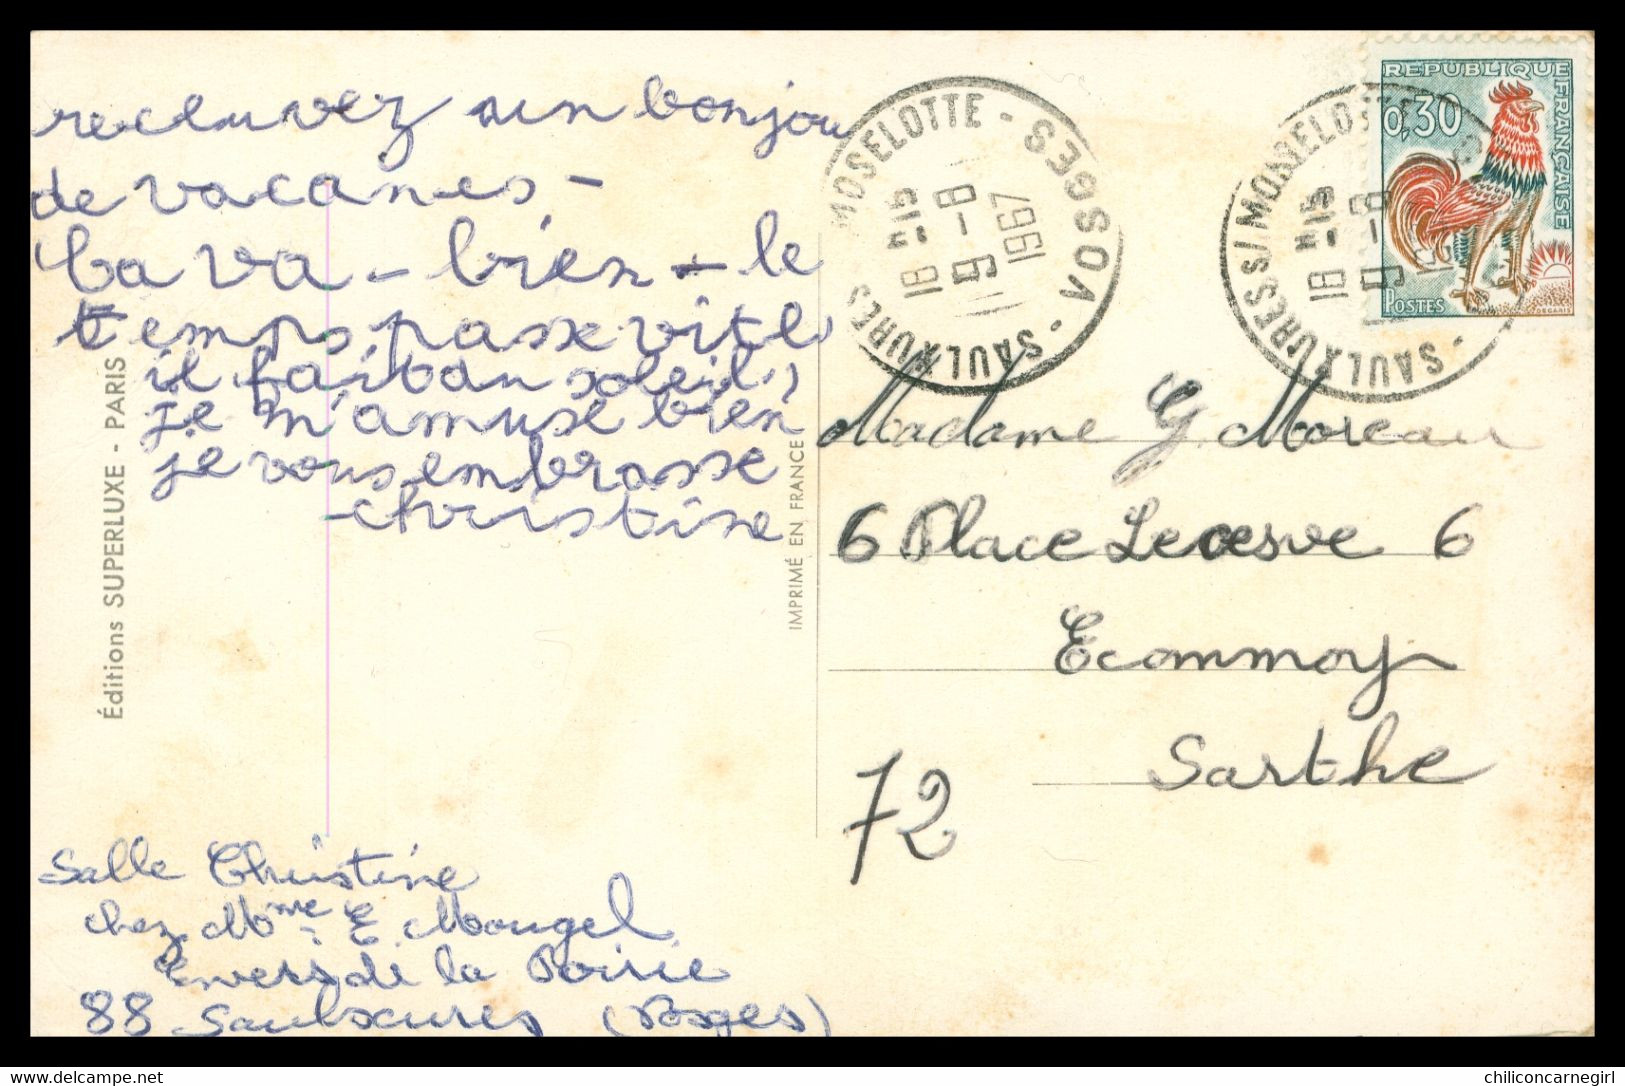 receuvez un bonjou
de vacanes -
Ca va - bien - le
temps passe vite
il fait bon soleil,
je m'amuse bien
je vous embrasse
-christine
Salle Christine
chez Mme E. Mougel
Envers de la Poirie
88 Saulxures (Vosges)
Éditions SUPERLUXE - PARIS
IMPRIMÉ EN FRANCE
SAULXURES S/ MOSELOTTE - VOSGES -
18 H 15
9 - 8
1967
SAULXURES S/ MOSELOTTE
18 H 15
9 - 8
REPUBLIQUE FRANÇAISE
0,30
POSTES
DECARIS
Madame G. Moreau
6 Place Lecesve 6
Ecommoy
Sarthe
72
https://www.delcampe.net
chiliconcarnegirl